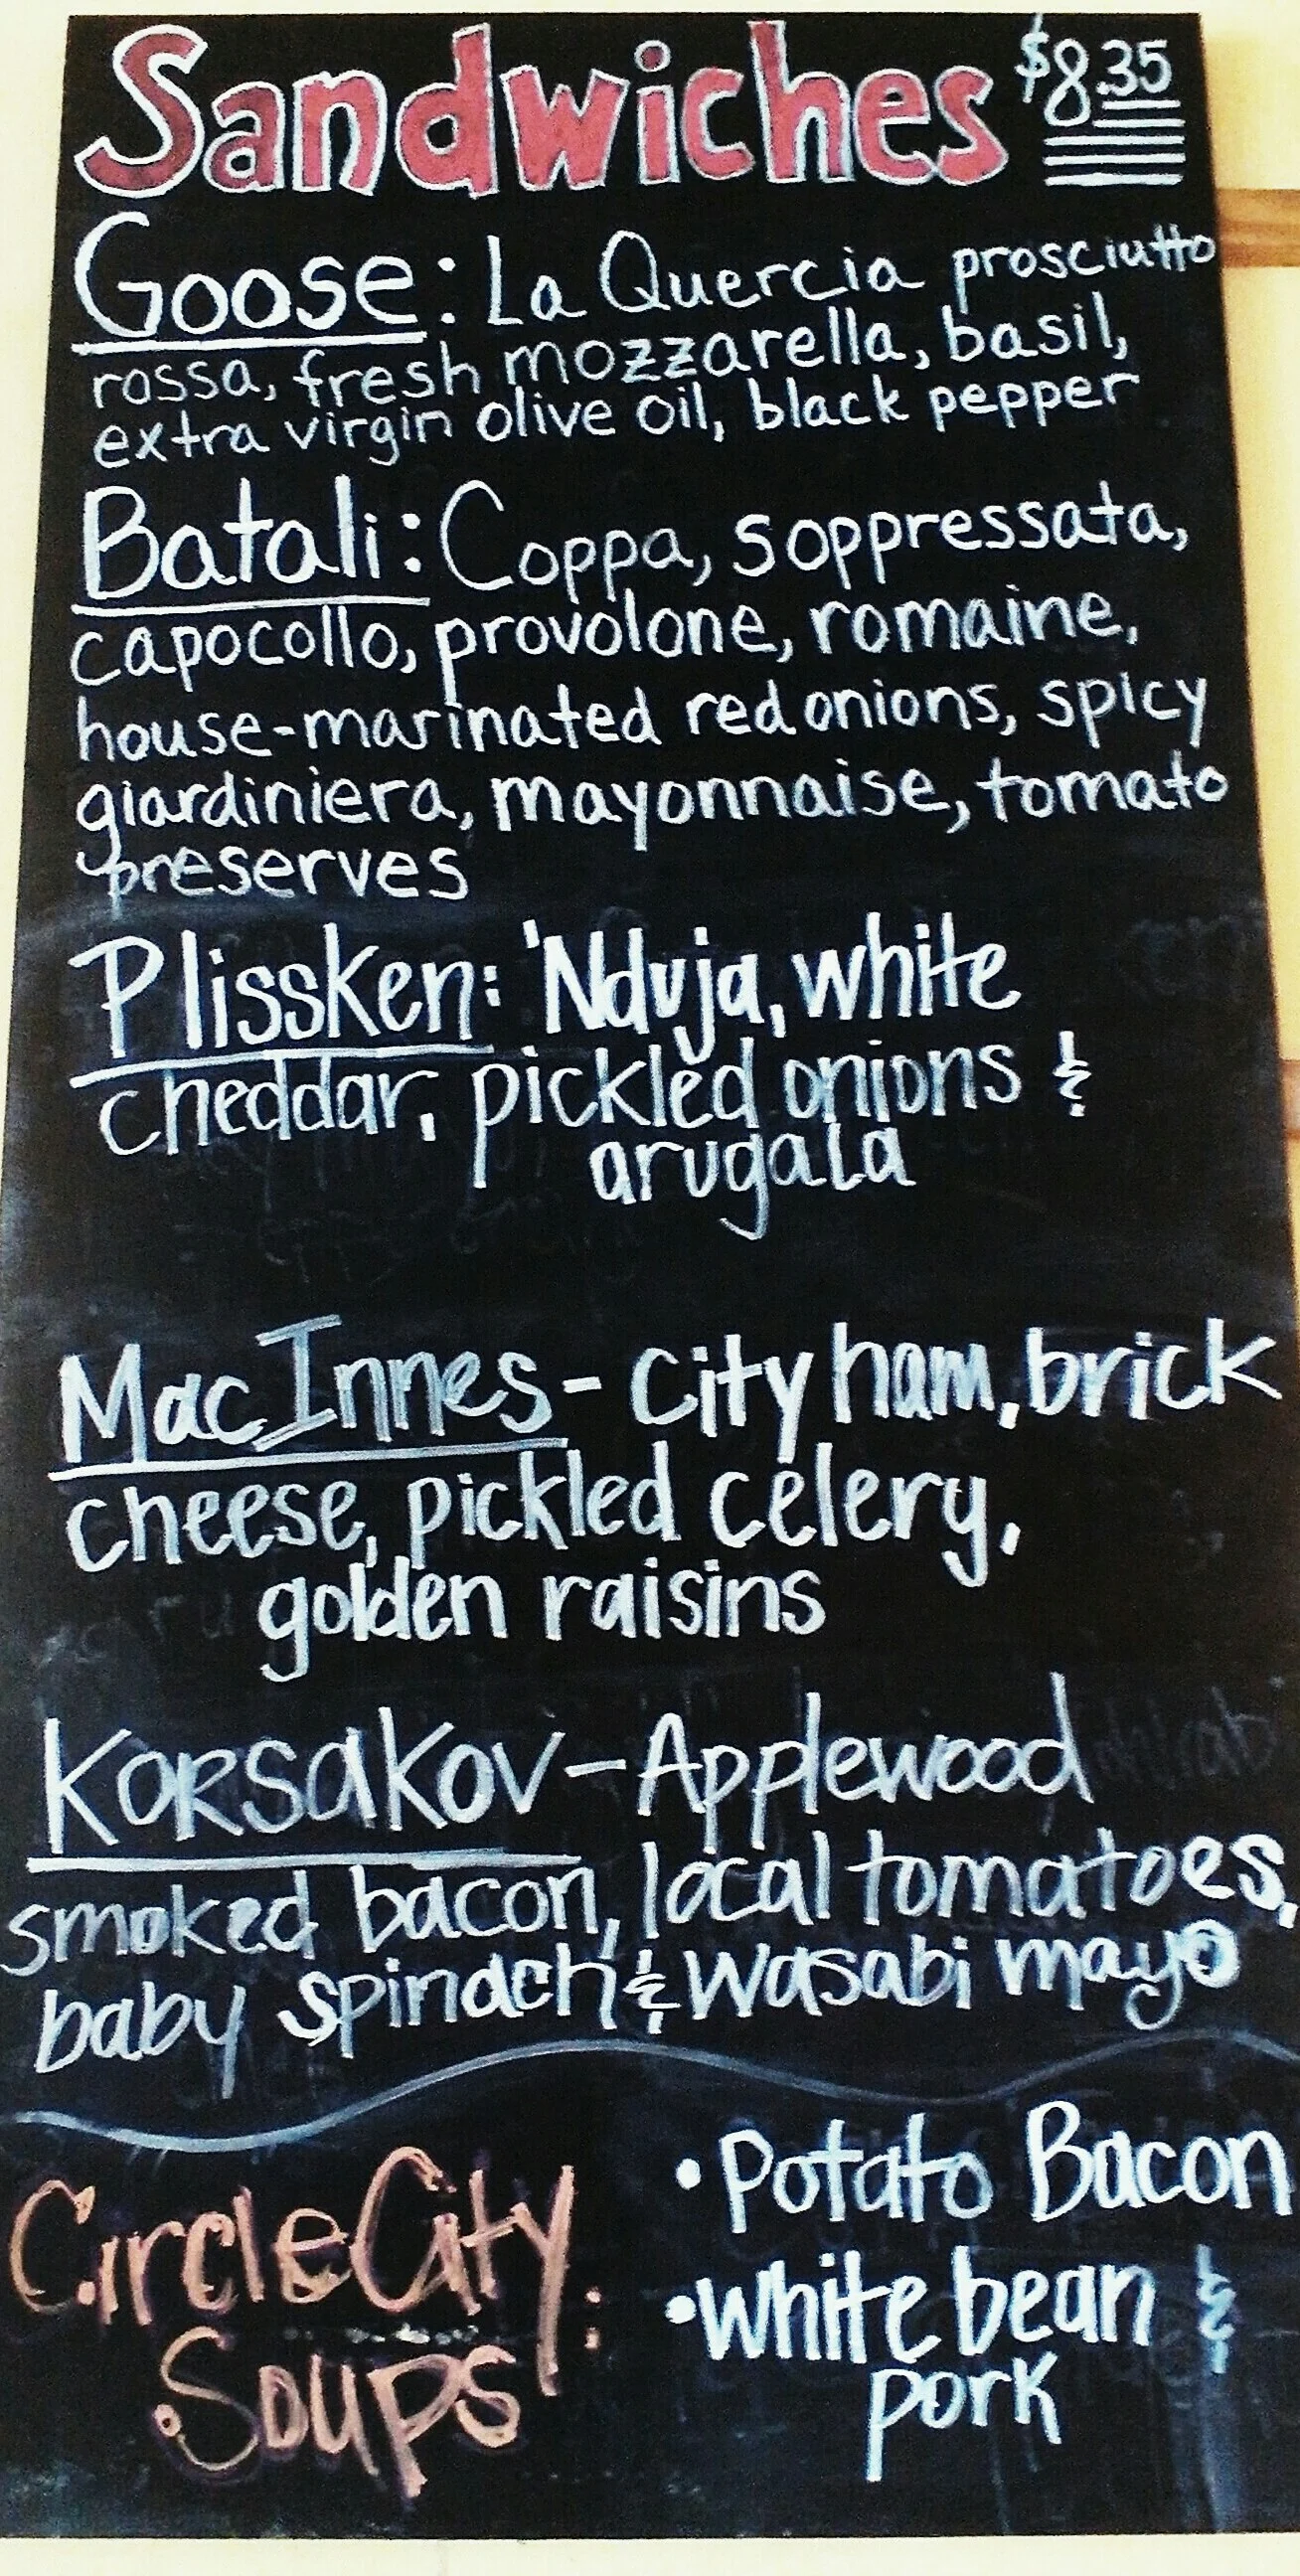 Sandwiches $8.35
Goose: La Quercia prosciutto
rossa, fresh mozzarella, basil,
extra virgin olive oil, black pepper
Batali: Coppa, soppressata,
capocollo, provolone, romaine,
house-marinated red onions, spicy
giardiniera, mayonnaise, tomato
preserves
Plissken: 'Nduja, white
cheddar, pickled onions &
arugala
MacInnes - City ham, brick
cheese, pickled celery,
golden raisins
Korsakov - Applewood
smoked bacon, local tomatoes,
baby spinach & wasabi mayo
Circle City:
Soups
• Potato Bacon
• White bean &
pork